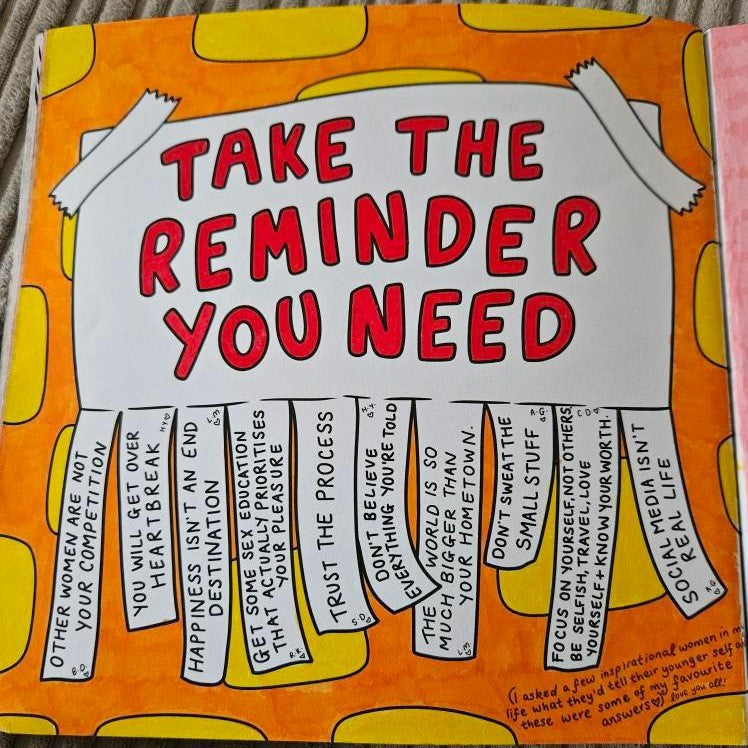 TAKE THE
REMINDER
YOU NEED
OTHER WOMEN ARE NOT
YOUR COMPETITION
B.D
YOU WILL GET OVER
HEARTBREAK
HY♡
HAPPINESS ISN'T AN END
DESTINATION
GET SOME SEX EDUCATION
THAT ACTUALLY PRIORITISES
YOUR PLEASURE
R.K
TRUST THE PROCESS
S.D
DON'T BELIEVE
EVERYTHING YOU'RE TOLD
THE WORLD IS SO
MUCH BIGGER THAN
YOUR HOMETOWN.
DON'T SWEAT THE
SMALL STUFF
A.G.
FOCUS ON YOURSELF, NOT OTHERS,
BE SELFISH, TRAVEL, LOVE
YOURSELF + KNOW YOUR WORTH.
CD♡
SOCIAL MEDIA ISN'T
REAL LIFE
A.G
(i asked a few inspirational women in my
life what they'd tell their younger self
these were some of my favourite
answers♡) love you all!